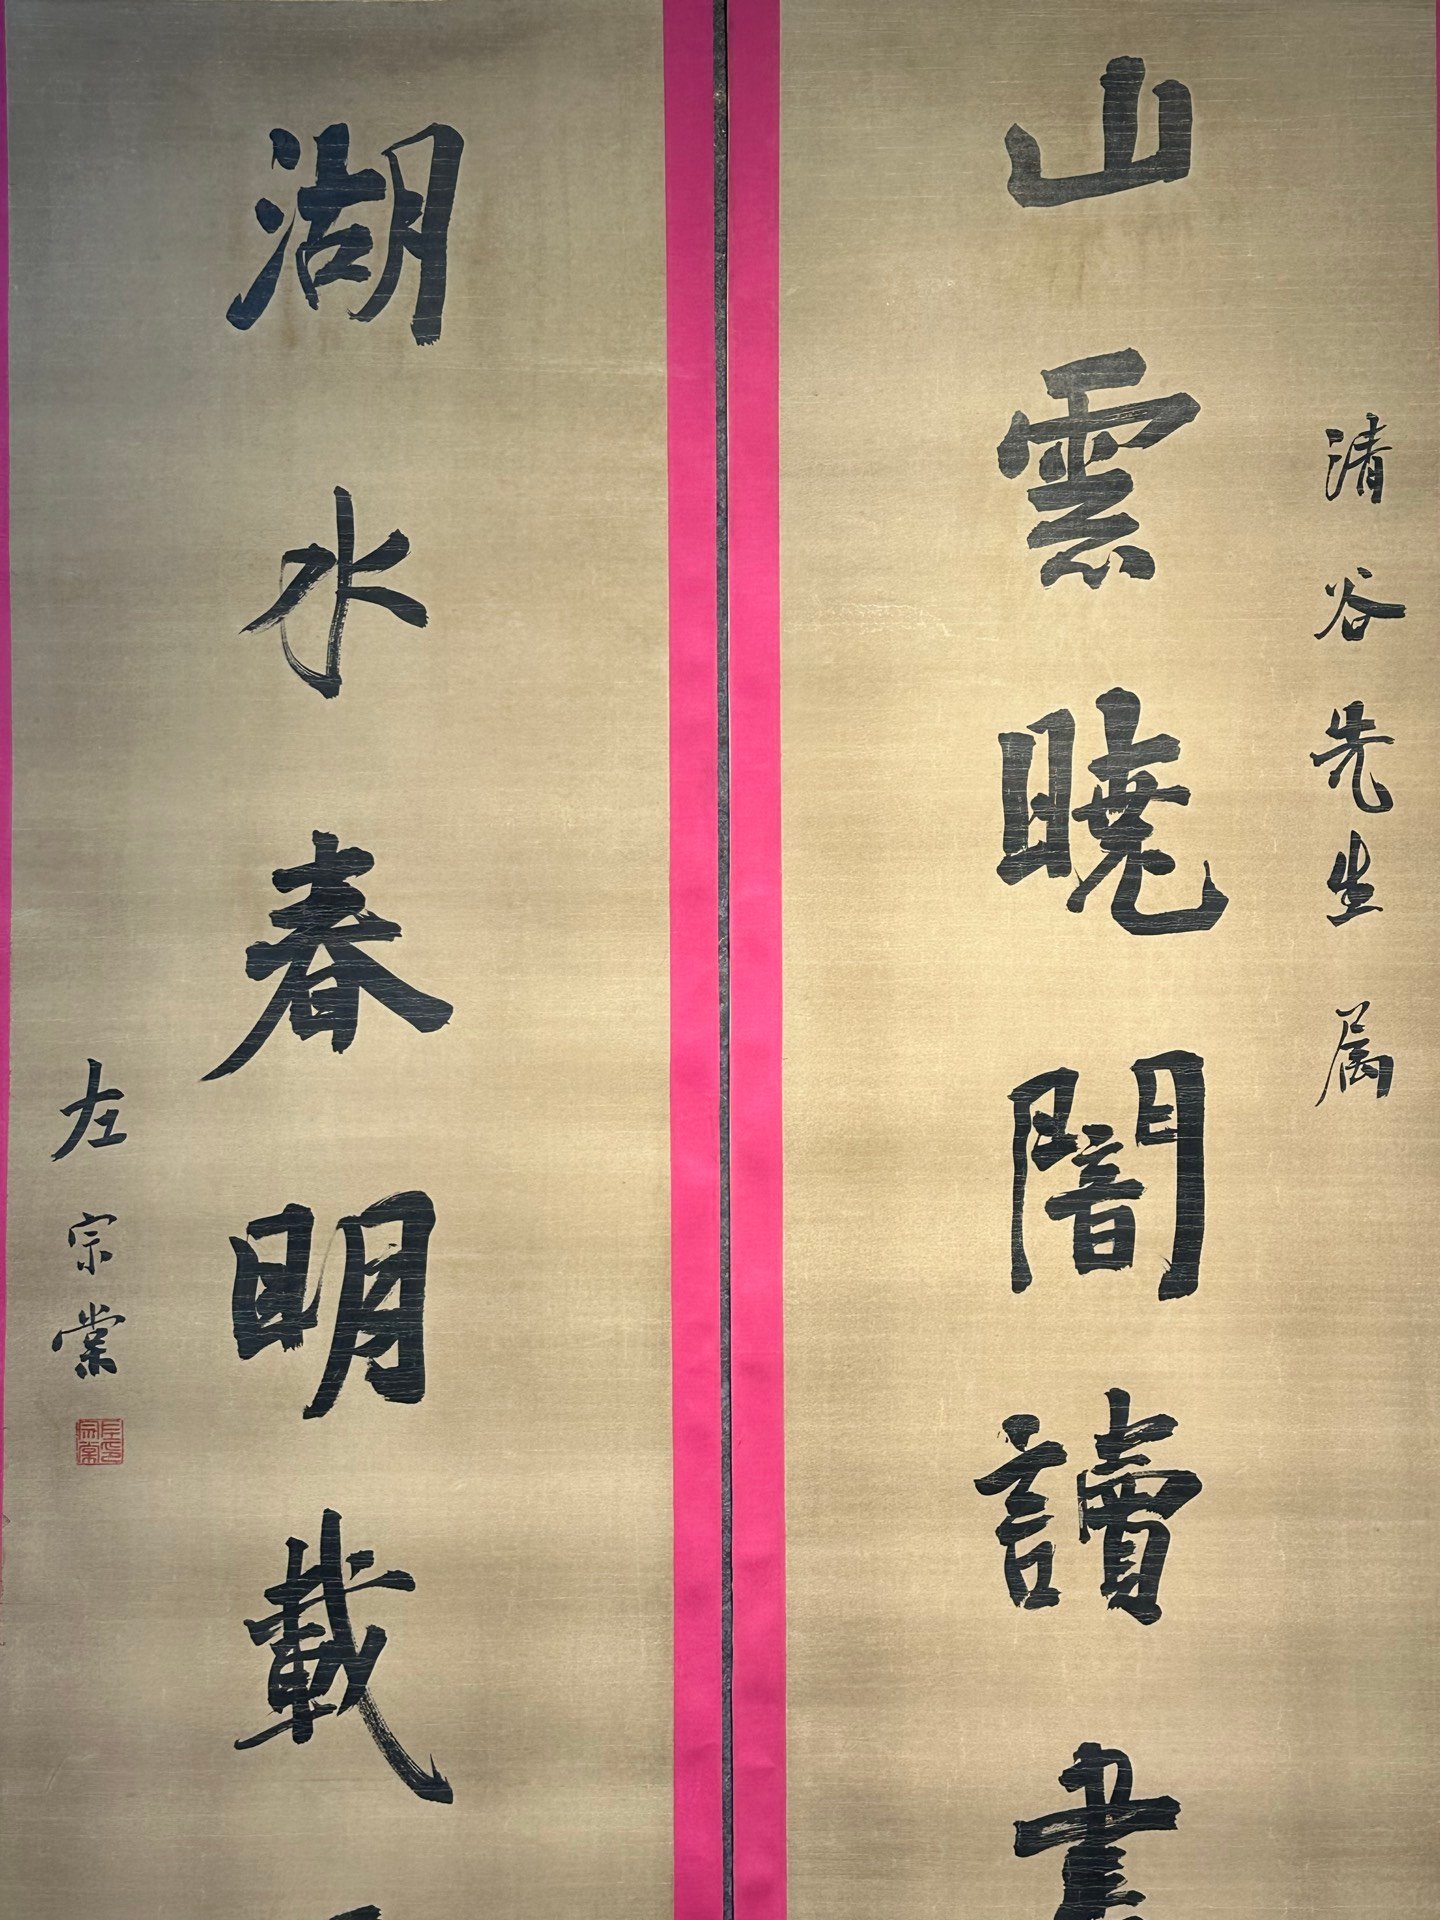 清谷先生属
山雲曉闇讀書
湖水春明載
左宗棠